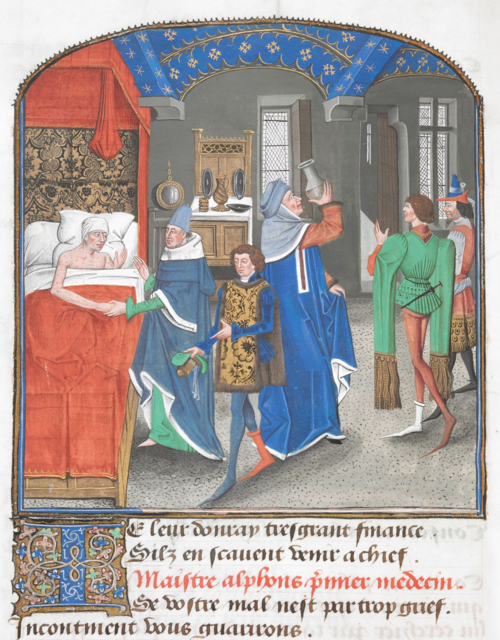 Je leur donray tresgrant finance
Silz en scauent venir a chief.
Maistre alphons p̃mier medecin.
Se vostre mal nest par trop grief.
Incontinent vous guarirons